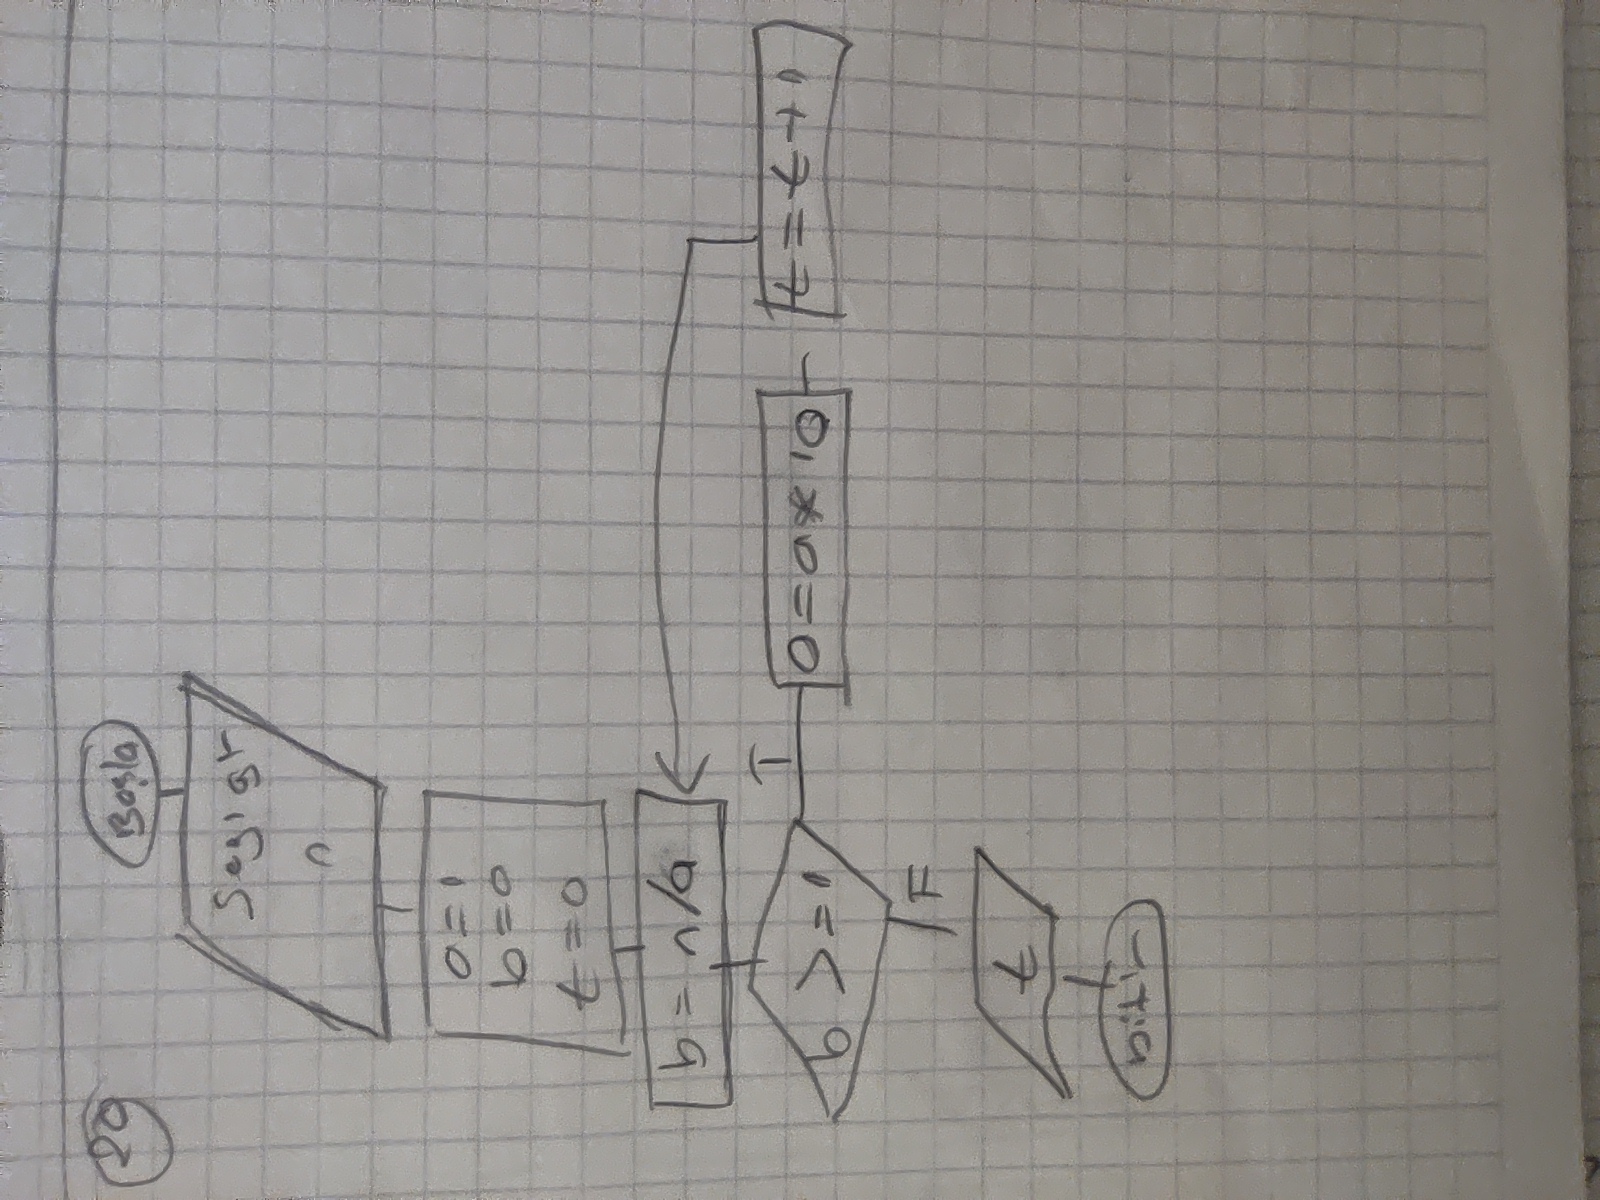 20
Başla
Sayı gir
n
a=1
b=0
t=0
b = n/a
b >= 1
T
a = a * 10
t = t + 1
F
t
bitir